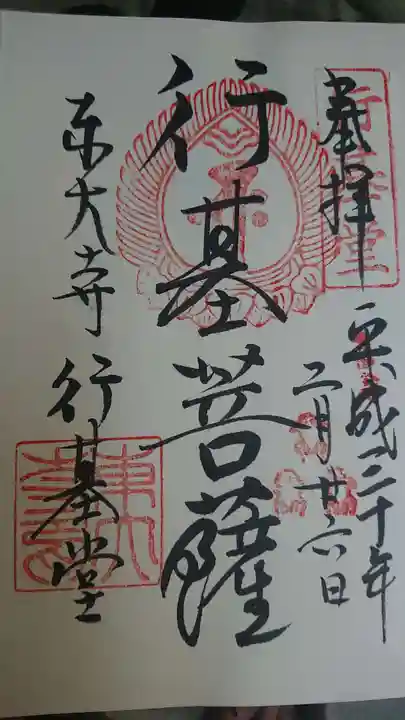 奉拝
平成二十年
二月廿六日
行基菩薩
東大寺 行基堂
行基堂